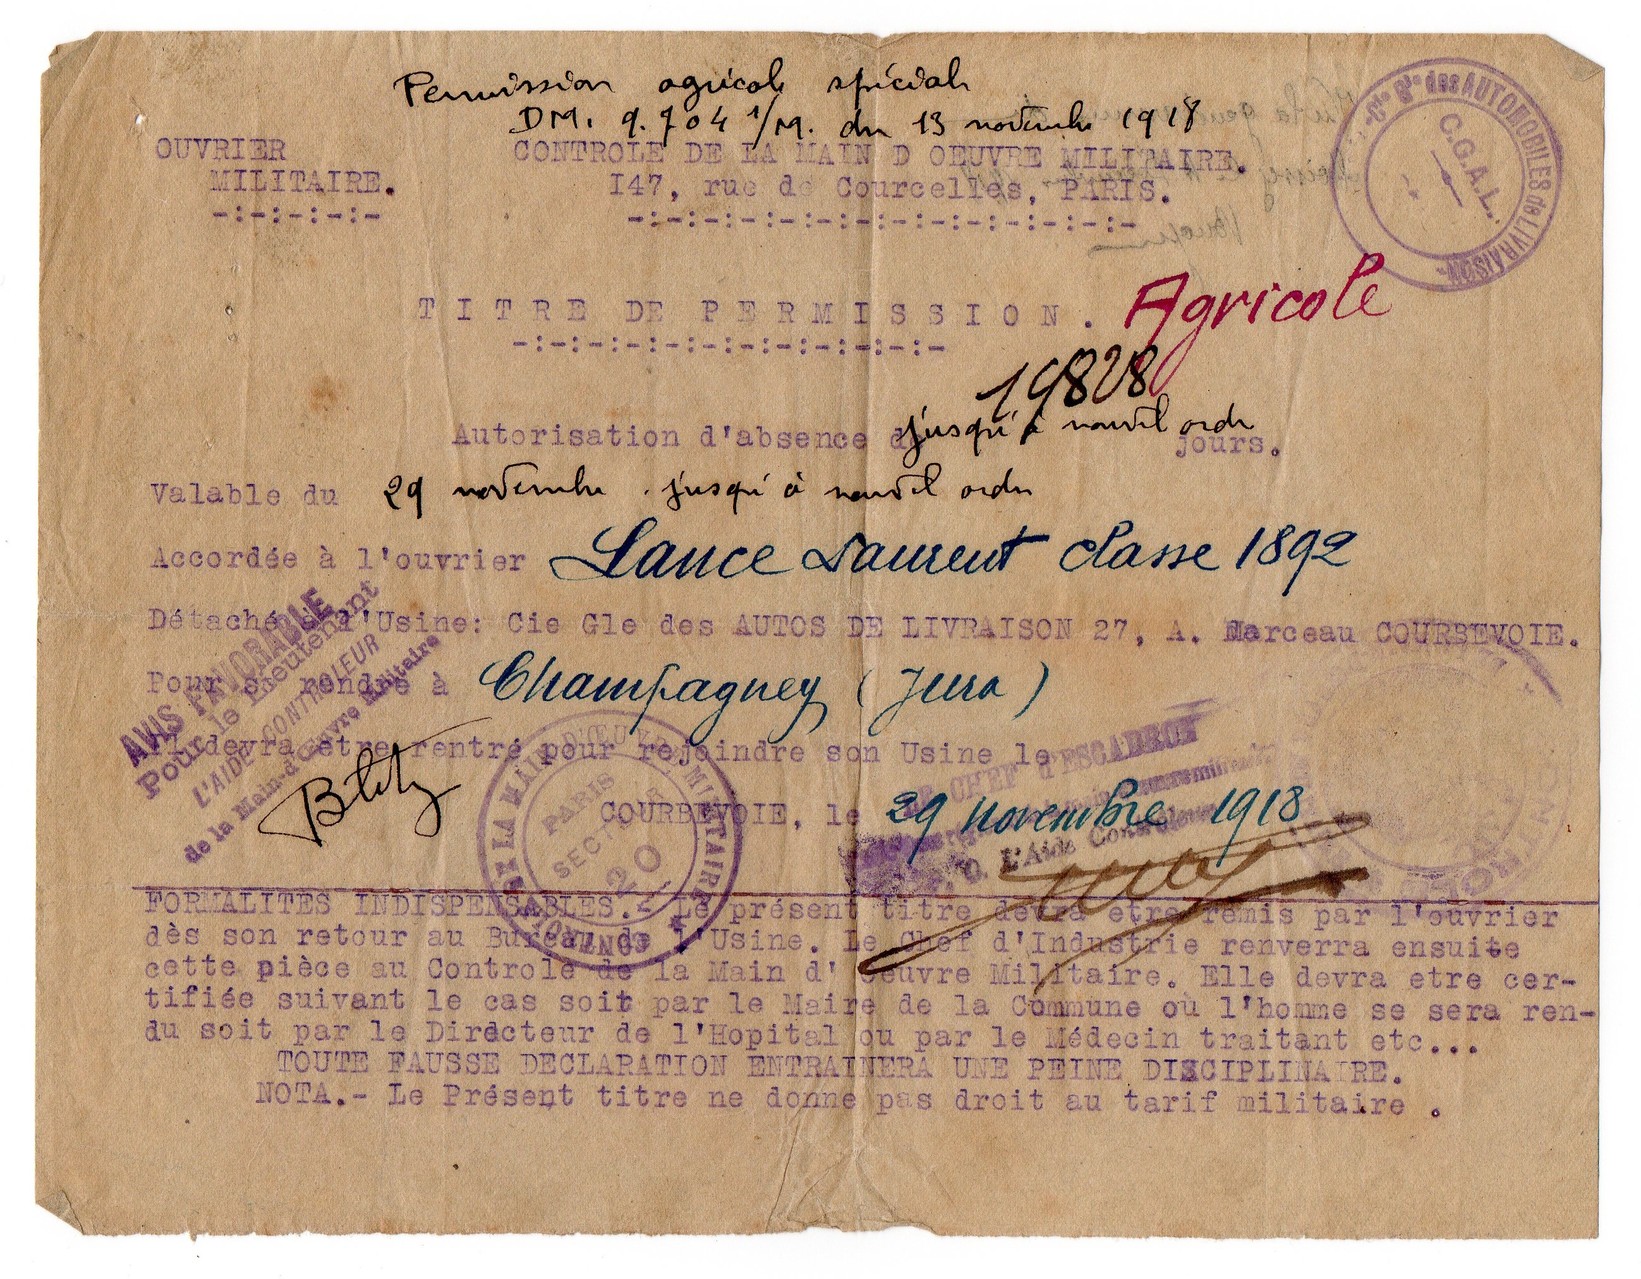 Permission agricole spéciale
DM. 9.704 1/M. du 13 novembre 1918
OUVRIER
MILITAIRE.
-:-:-:-:-
CONTROLE DE LA MAIN D OEUVRE MILITAIRE.
I47, rue de Courcelles, PARIS.
-:-:-:-:-:-:-:-:-:-:-:-:-:-
-Cie Gle des AUTOMOBILES de LIVRAISON-
C.G.A.L.
TITRE DE PERMISSION. Agricole
-:-:-:-:-:-:-:-:-:-:-:-
19828
Autorisation d'absence de jusqu'à nouvel ordre jours.
Valable du 29 novembre. jusqu'à nouvel ordre
Accordée à l'ouvrier Lance Laurent classe 1892
Détaché à l'Usine: Cie Gle des AUTOS DE LIVRAISON 27, A. Marceau COURBEVOIE.
Pour se rendre à Champagney (Jura)
Il devra être rentré pour rejoindre son Usine le
COURBEVOIE, le 29 novembre 1918
AVIS FAVORABLE
Pour le Lieutenant
L'AIDE CONTROLEUR
de la Main-d'Œuvre Militaire
CONTROLE DE LA MAIN D'ŒUVRE MILITAIRE
PARIS
SECTEUR
20
LE CHEF D'ESCADRON
P. O. L'Aide Contrôleur
FORMALITES INDISPENSABLES.- Le présent titre devra etre remis par l'ouvrier
dès son retour au Bureau de l'Usine. Le Chef d'Industrie renverra ensuite
cette pièce au Controle de la Main d' Oeuvre Militaire. Elle devra etre cer-
tifiée suivant le cas soit par le Maire de la Commune où l'homme se sera ren-
du soit par le Directeur de l'Hopital ou par le Médecin traitant etc...
TOUTE FAUSSE DECLARATION ENTRAINERA UNE PEINE DISCIPLINAIRE.
NOTA.- Le Présent titre ne donne pas droit au tarif militaire .